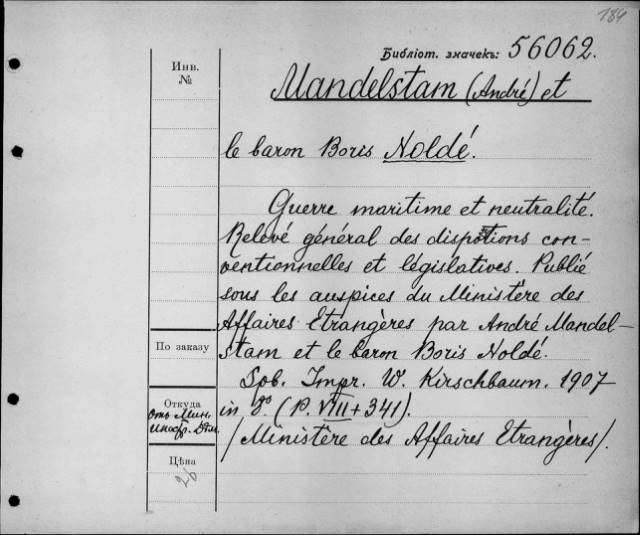 184
Библіот. значекъ: 56062.
Инв.
№
Mandelstam (André) et
le baron Boris Noldé.
Guerre maritime et neutralité.
Relevé général des dispositions con-
ventionnelles et législatives. Publié
sous les auspices du Ministère des
Affaires Etrangères par André Mandel-
По заказу
stam et le baron Boris Noldé.
Impr. W. Kirschbaum. 1907
Откуда
отъ Мин.
Иностр. Дѣл.
in 8° (P. VIII + 341).
/Ministère des Affaires Etrangères/.
Цѣна